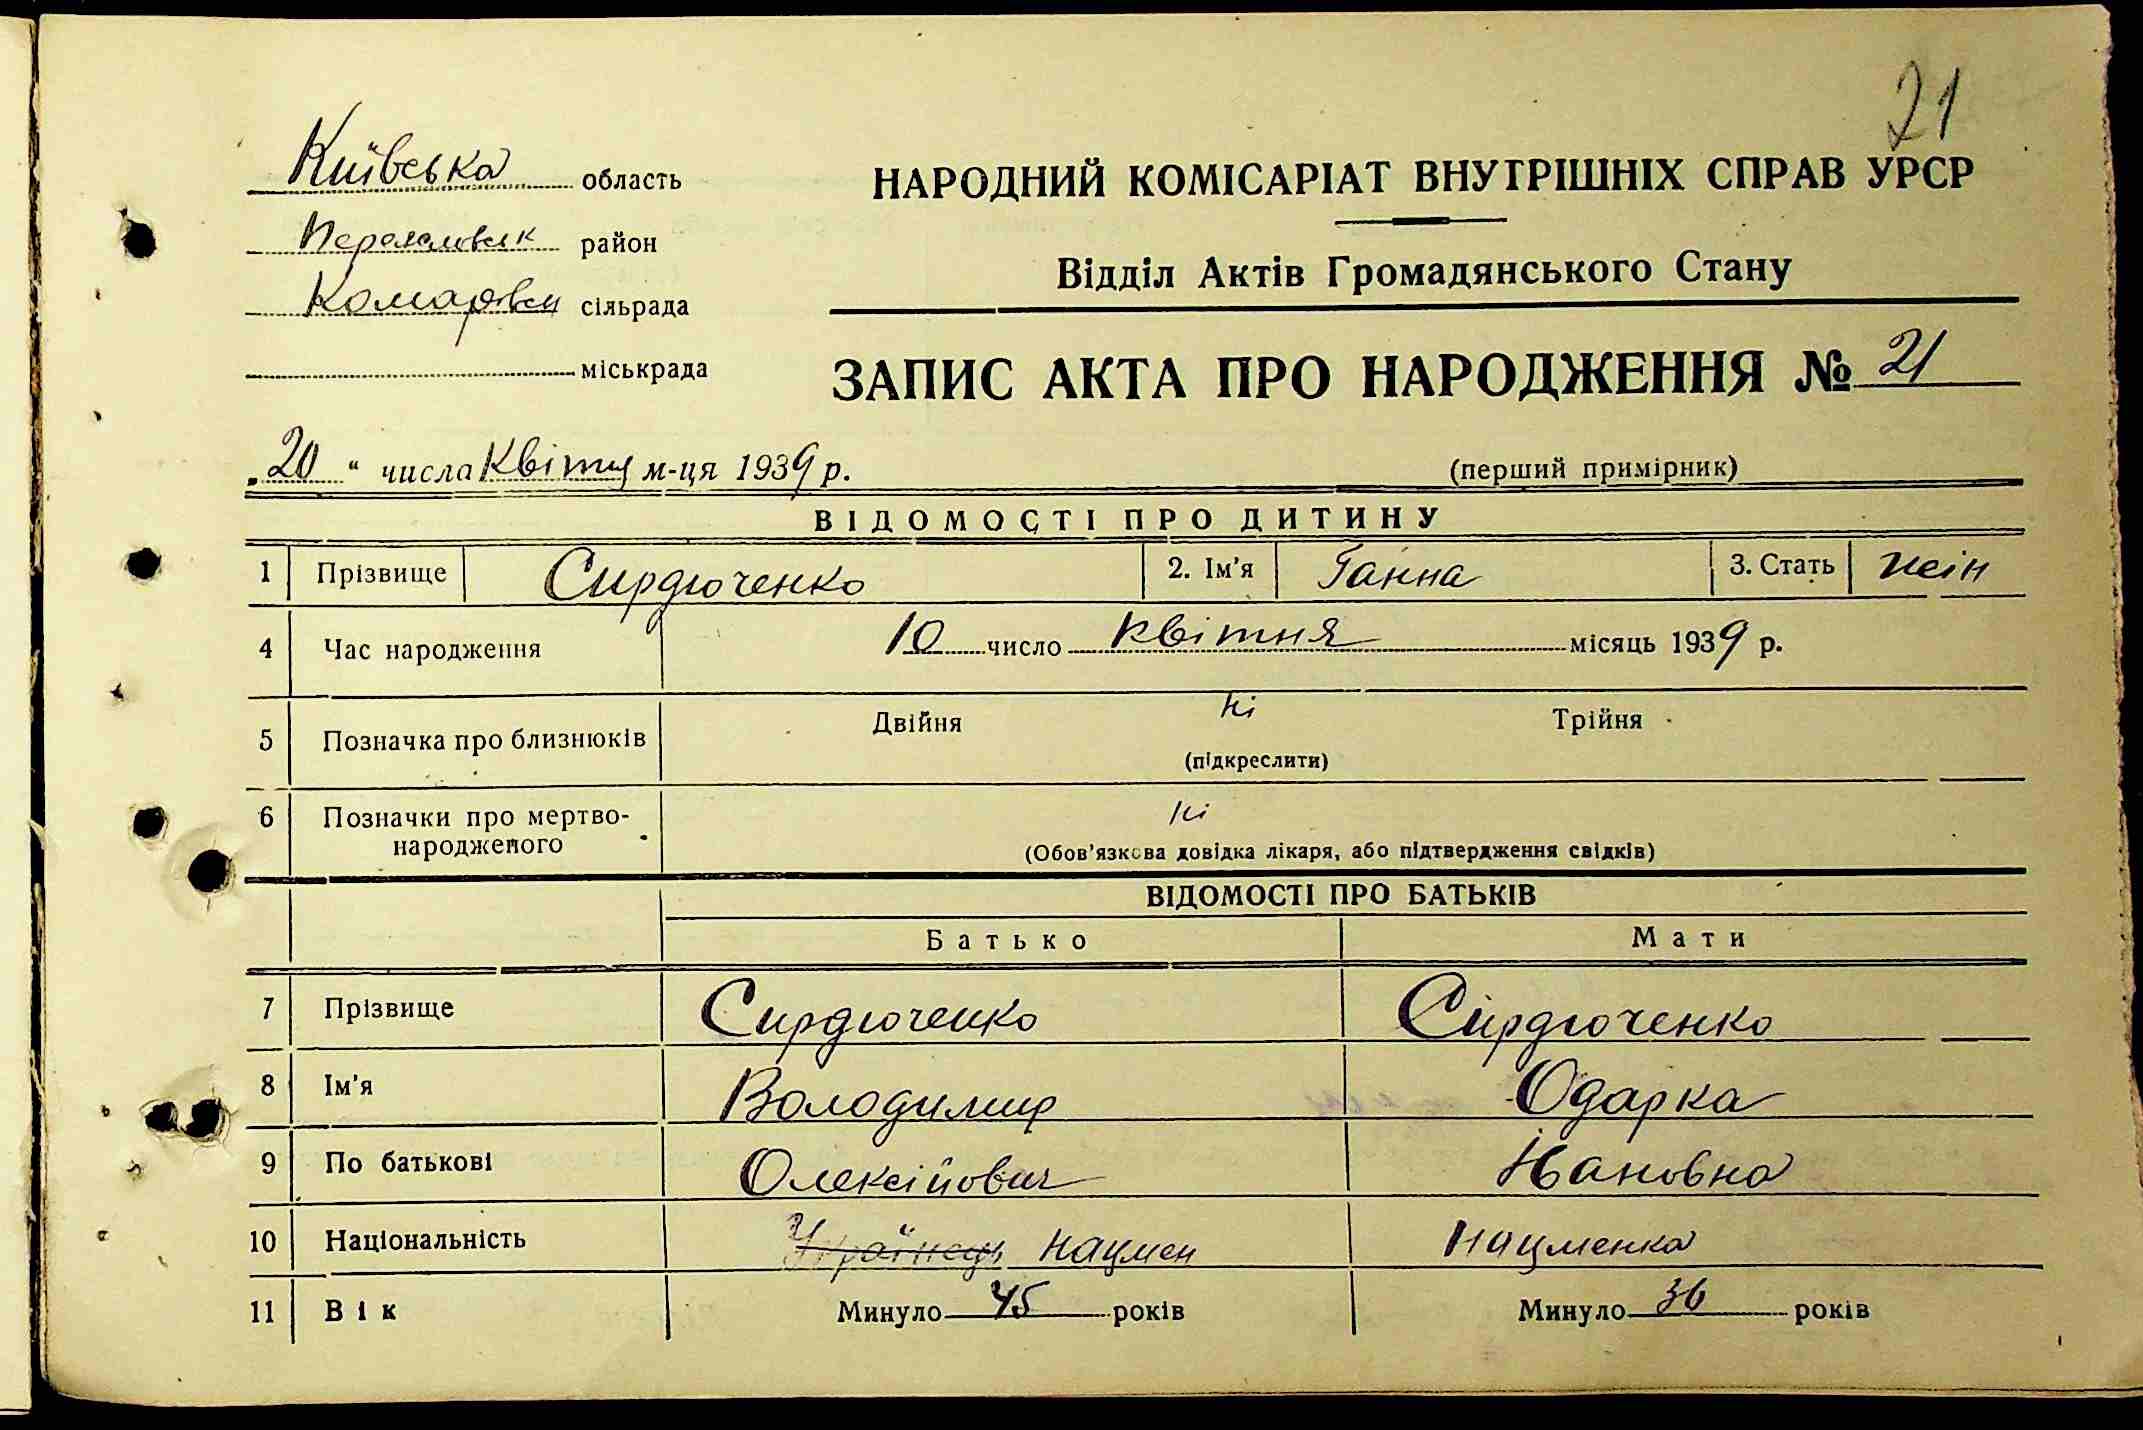 21
Київська область
НАРОДНИЙ КОМІСАРІАТ ВНУТРІШНІХ СПРАВ УРСР
район
Відділ Актів Громадянського Стану
сільрада
міськрада
ЗАПИС АКТА ПРО НАРОДЖЕННЯ № 21
„20“ числа Квітня м-ця 1939 р.
(перший примірник)
ВІДОМОСТІ ПРО ДИТИНУ
1 Прізвище Сирдюченко 2. Ім'я Ганна 3. Стать жін
4 Час народження 10 число Квітня місяць 1939 р.
5 Позначка про близнюків Двійня ні Трійня
(підкреслити)
6 Позначки про мертво-
народженого ні
(Обов'язкова довідка лікаря, або підтвердження свідків)
ВІДОМОСТІ ПРО БАТЬКІВ
Батько Мати
7 Прізвище Сирдюченко Сирдюченко
8 Ім'я Володимир Одарка
9 По батькові Олексійович Івановна
10 Національність Українець нацмен нацменка
11 Вік Минуло 45 років Минуло 36 років